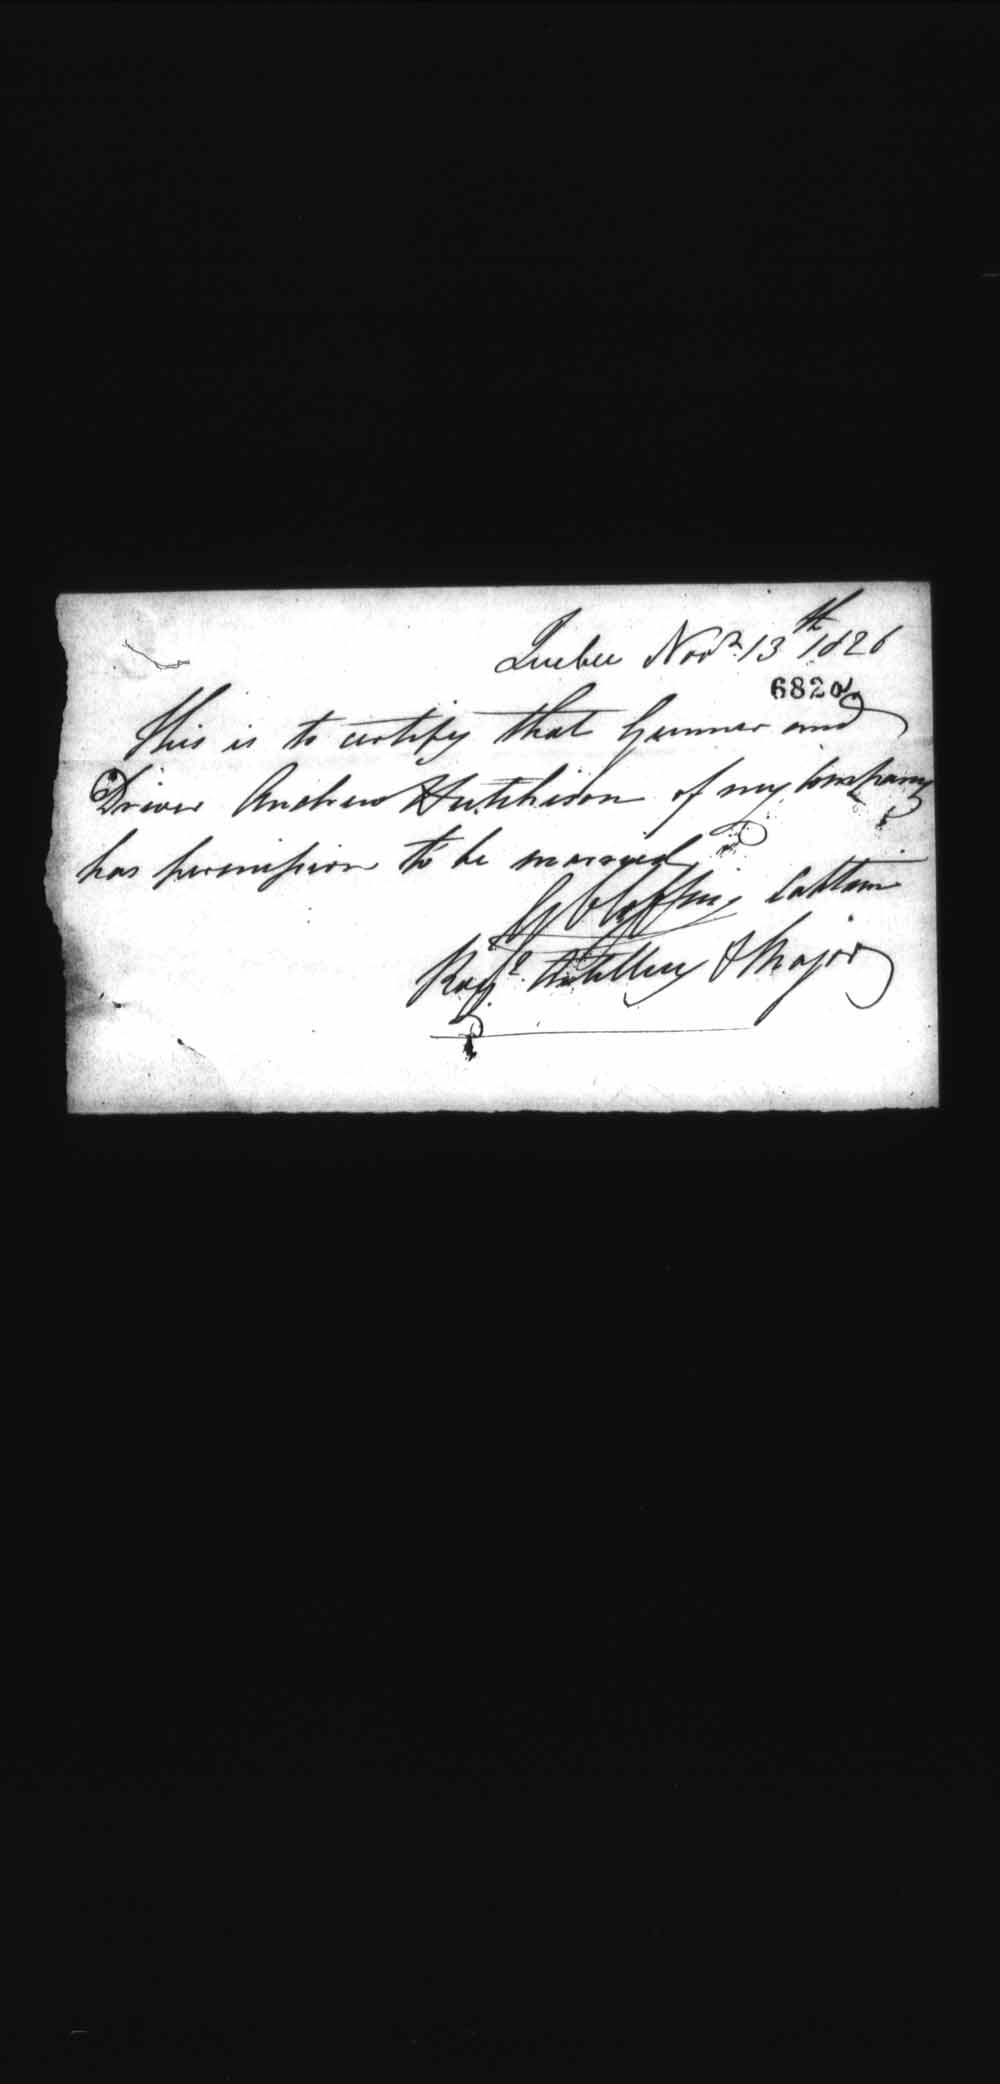 Quebec Novr 13th 1826
6820
This is to certify that Gunner and
Driver Andrew Hutchison of my Company
has permission to be married
Captain
Royl Artillery & Major